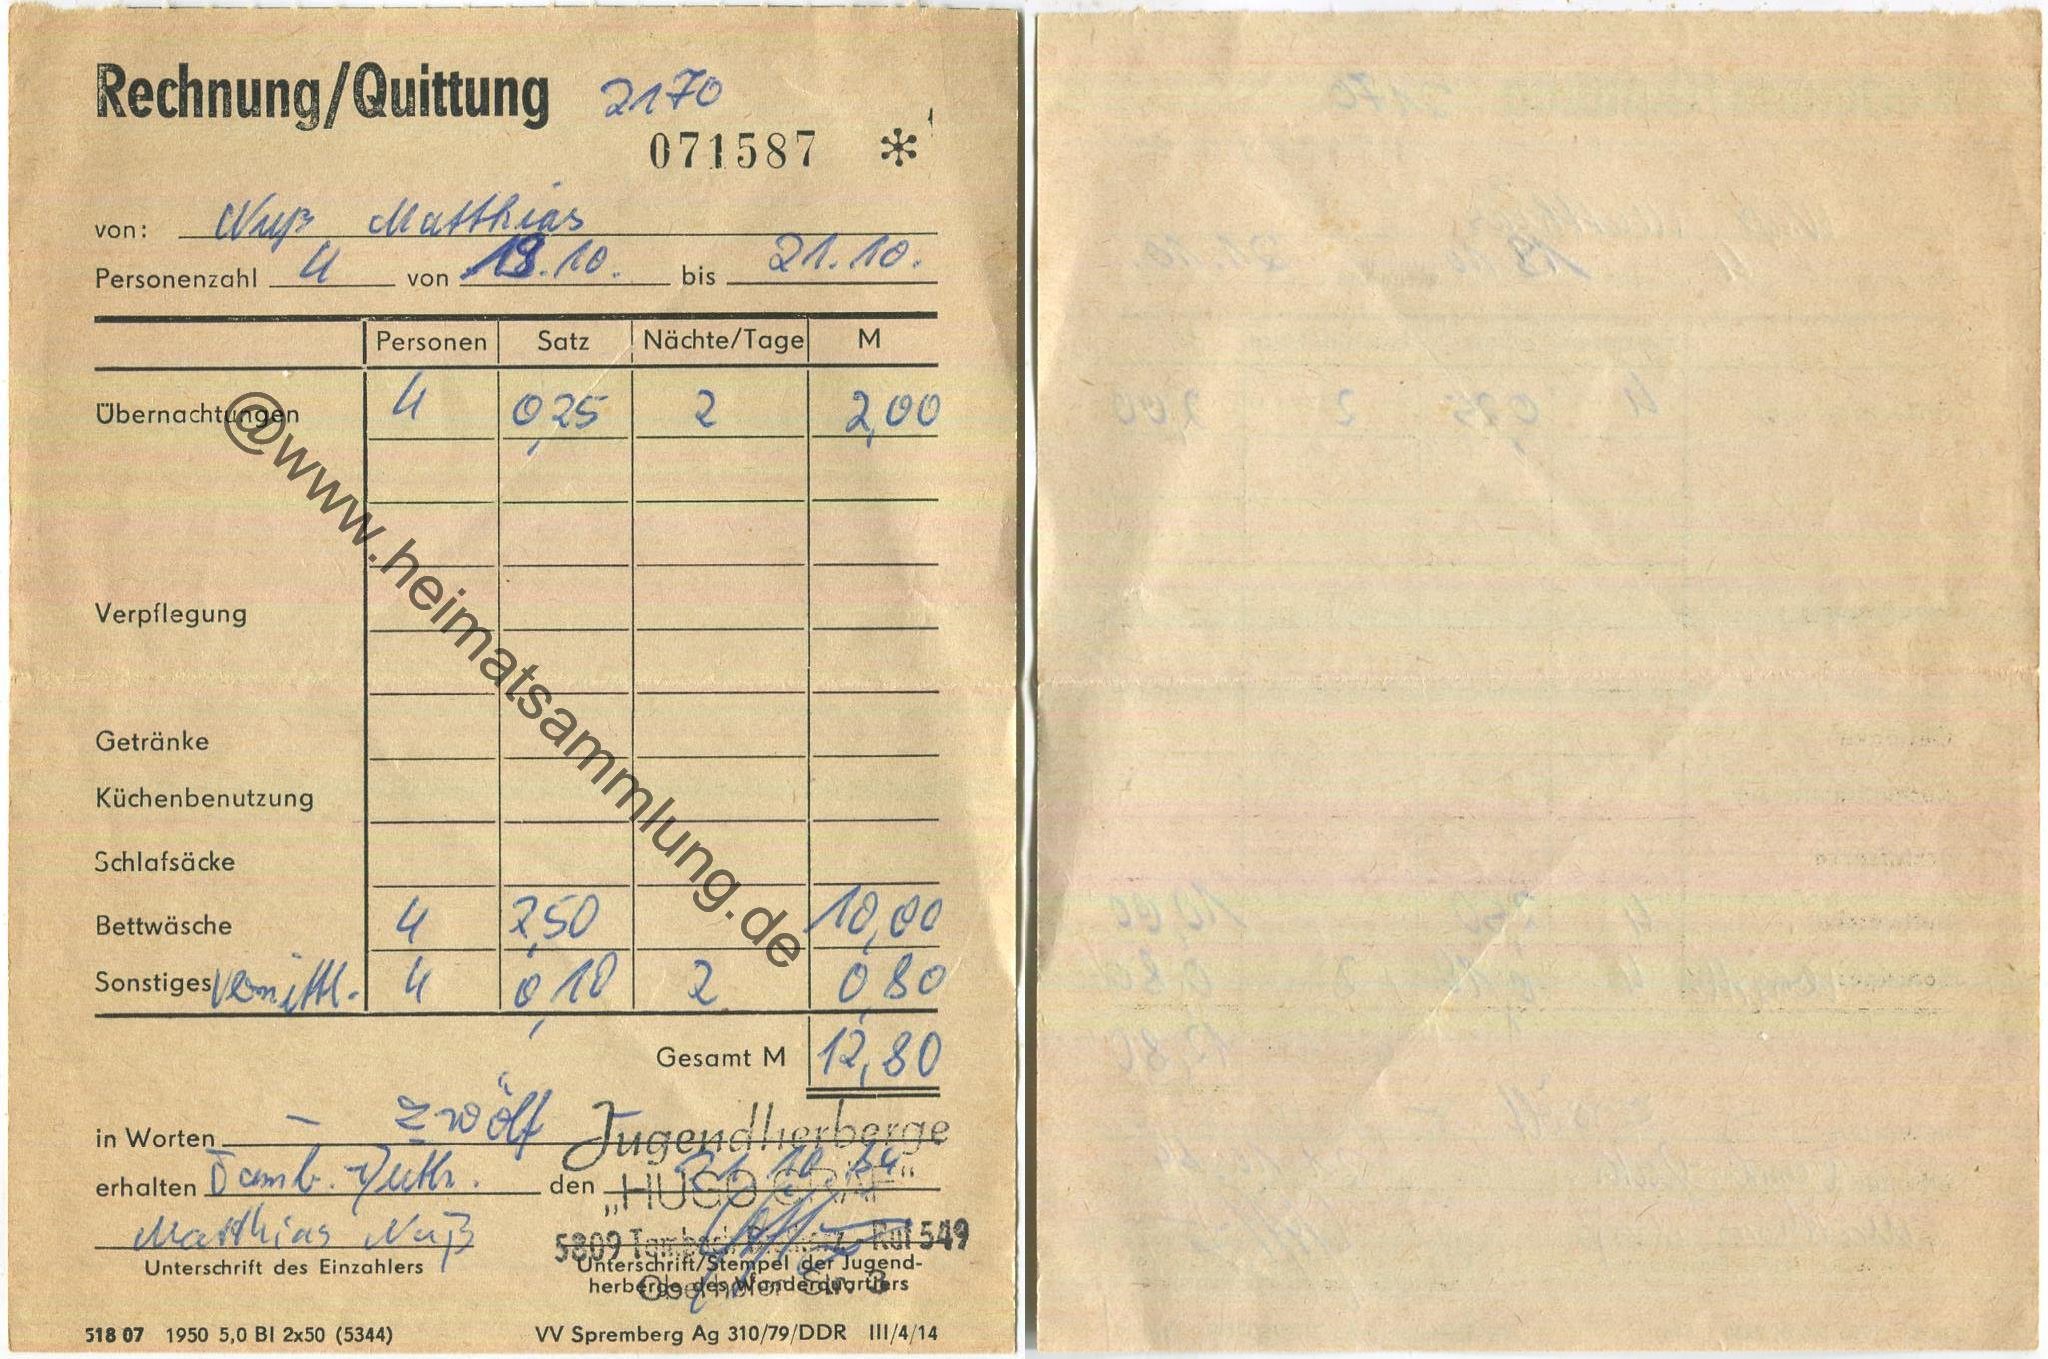 Rechnung/Quittung 2170
071587 *
von: Nuß Matthias
Personenzahl 4 von 19.10. bis 21.10.
Personen Satz Nächte/Tage M
Übernachtungen 4 0,25 2 2,00
Verpflegung
Getränke
Küchenbenutzung
Schlafsäcke
Bettwäsche 4 2,50 10,00
Sonstiges Vermittl. 4 0,10 2 0,80
Gesamt M 12,80
in Worten – zwölf
Jugendherberge
erhalten Tamb.-Dieth. den 21.10.
„HUGO
Matthias Nuß
5809 Tambach Ruf 549
Unterschrift des Einzahlers
Unterschrift/Stempel der Jugend-
herberge des Wanderquartiers
Str. 3
518 07 1950 5,0 Bl 2x50 (5344) VV Spremberg Ag 310/79/DDR III/4/14
@www.heimatsammlung.de